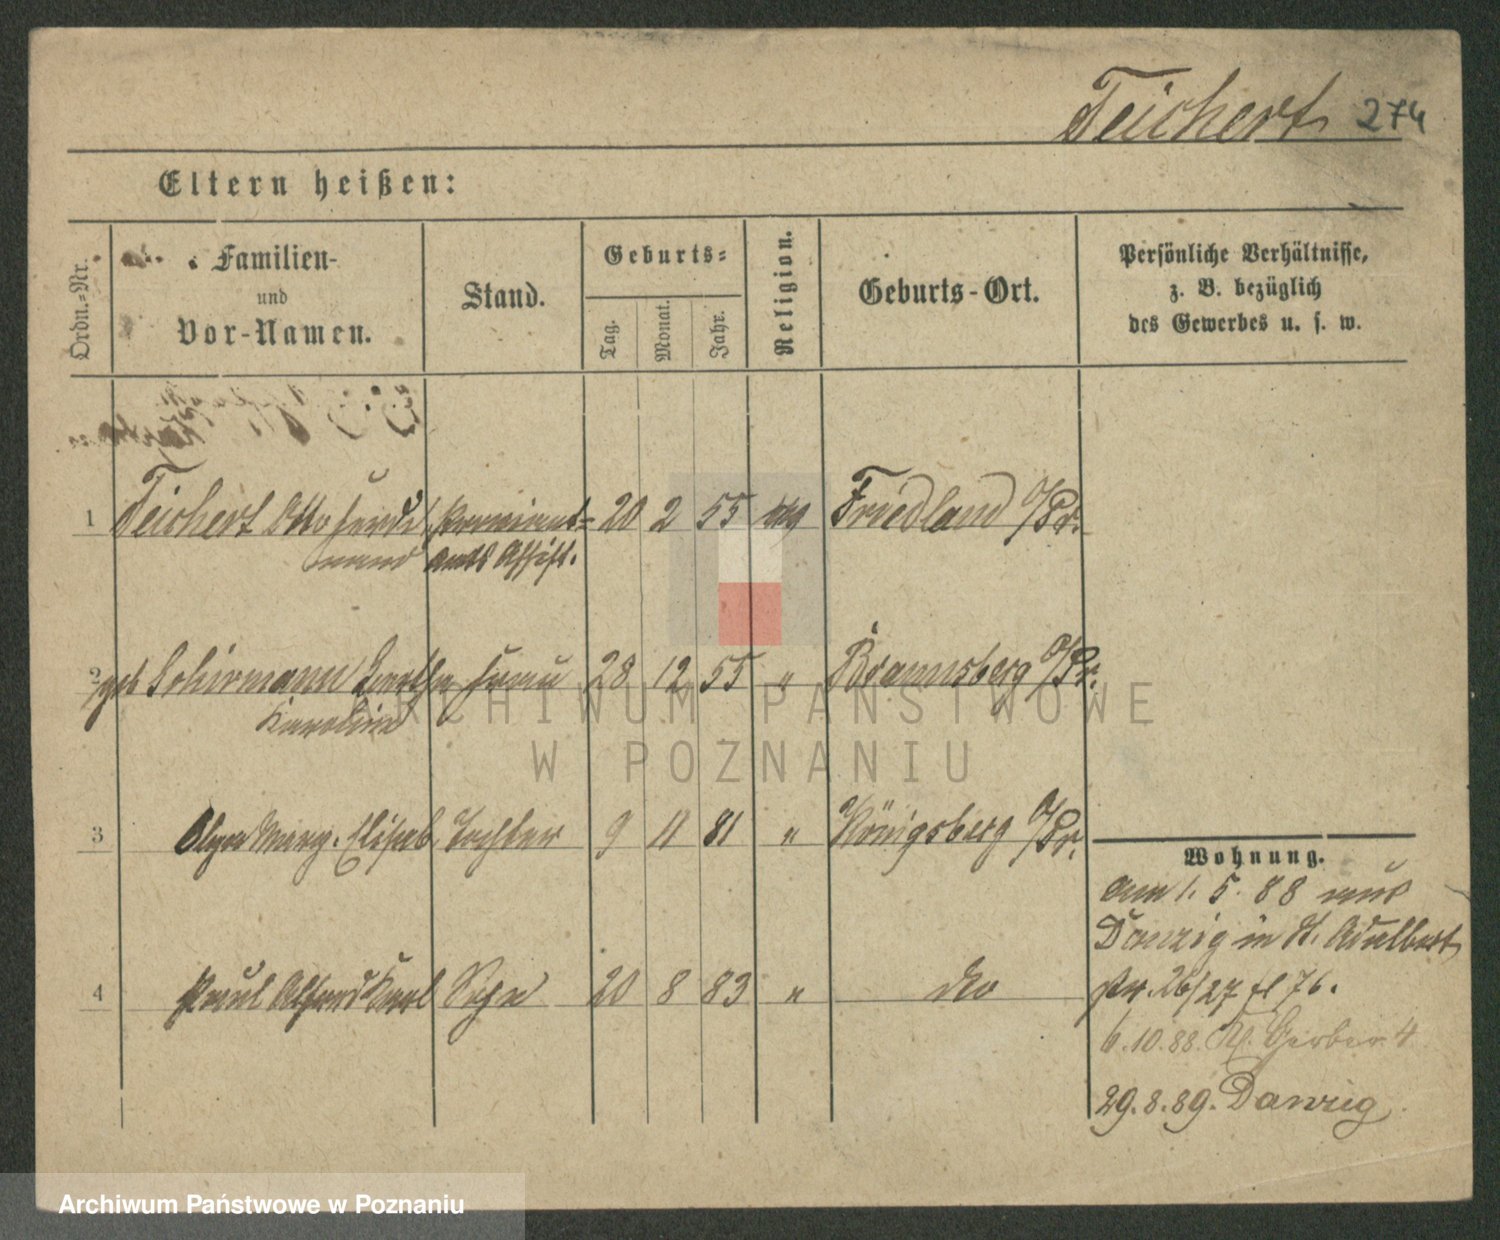 Teichert 274
Eltern heißen:
Ordn.-Nr.
Familien-
und
Vor-Namen.
Stand.
Geburts-
Tag.
Monat.
Jahr.
Religion.
Geburts-Ort.
Persönliche Verhältnisse,
z. B. bezüglich
des Gewerbes u. s. w.
1 Teichert Otto Ferdi Proviant= 20 2 55 Friedland O/Pr.
nand amts Assist.
2 geb Schirmann Bertha Frau 28 12 55 " Braunsberg O/Pr.
Karoline
3 Olga Marg. Elisab Tochter 9 11 81 " Königsberg O/Pr.
4 Paul Alfred Karl Sohn 20 8 83 " do
Wohnung.
am 1. 5. 88 aus
Danzig in St. Adalbert
str. 26/27 76.
6.10.88. Kl. Gerber 4
29.8.89. Danzig.
ARCHIWUM PAŃSTWOWE
W POZNANIU
Archiwum Państwowe w Poznaniu